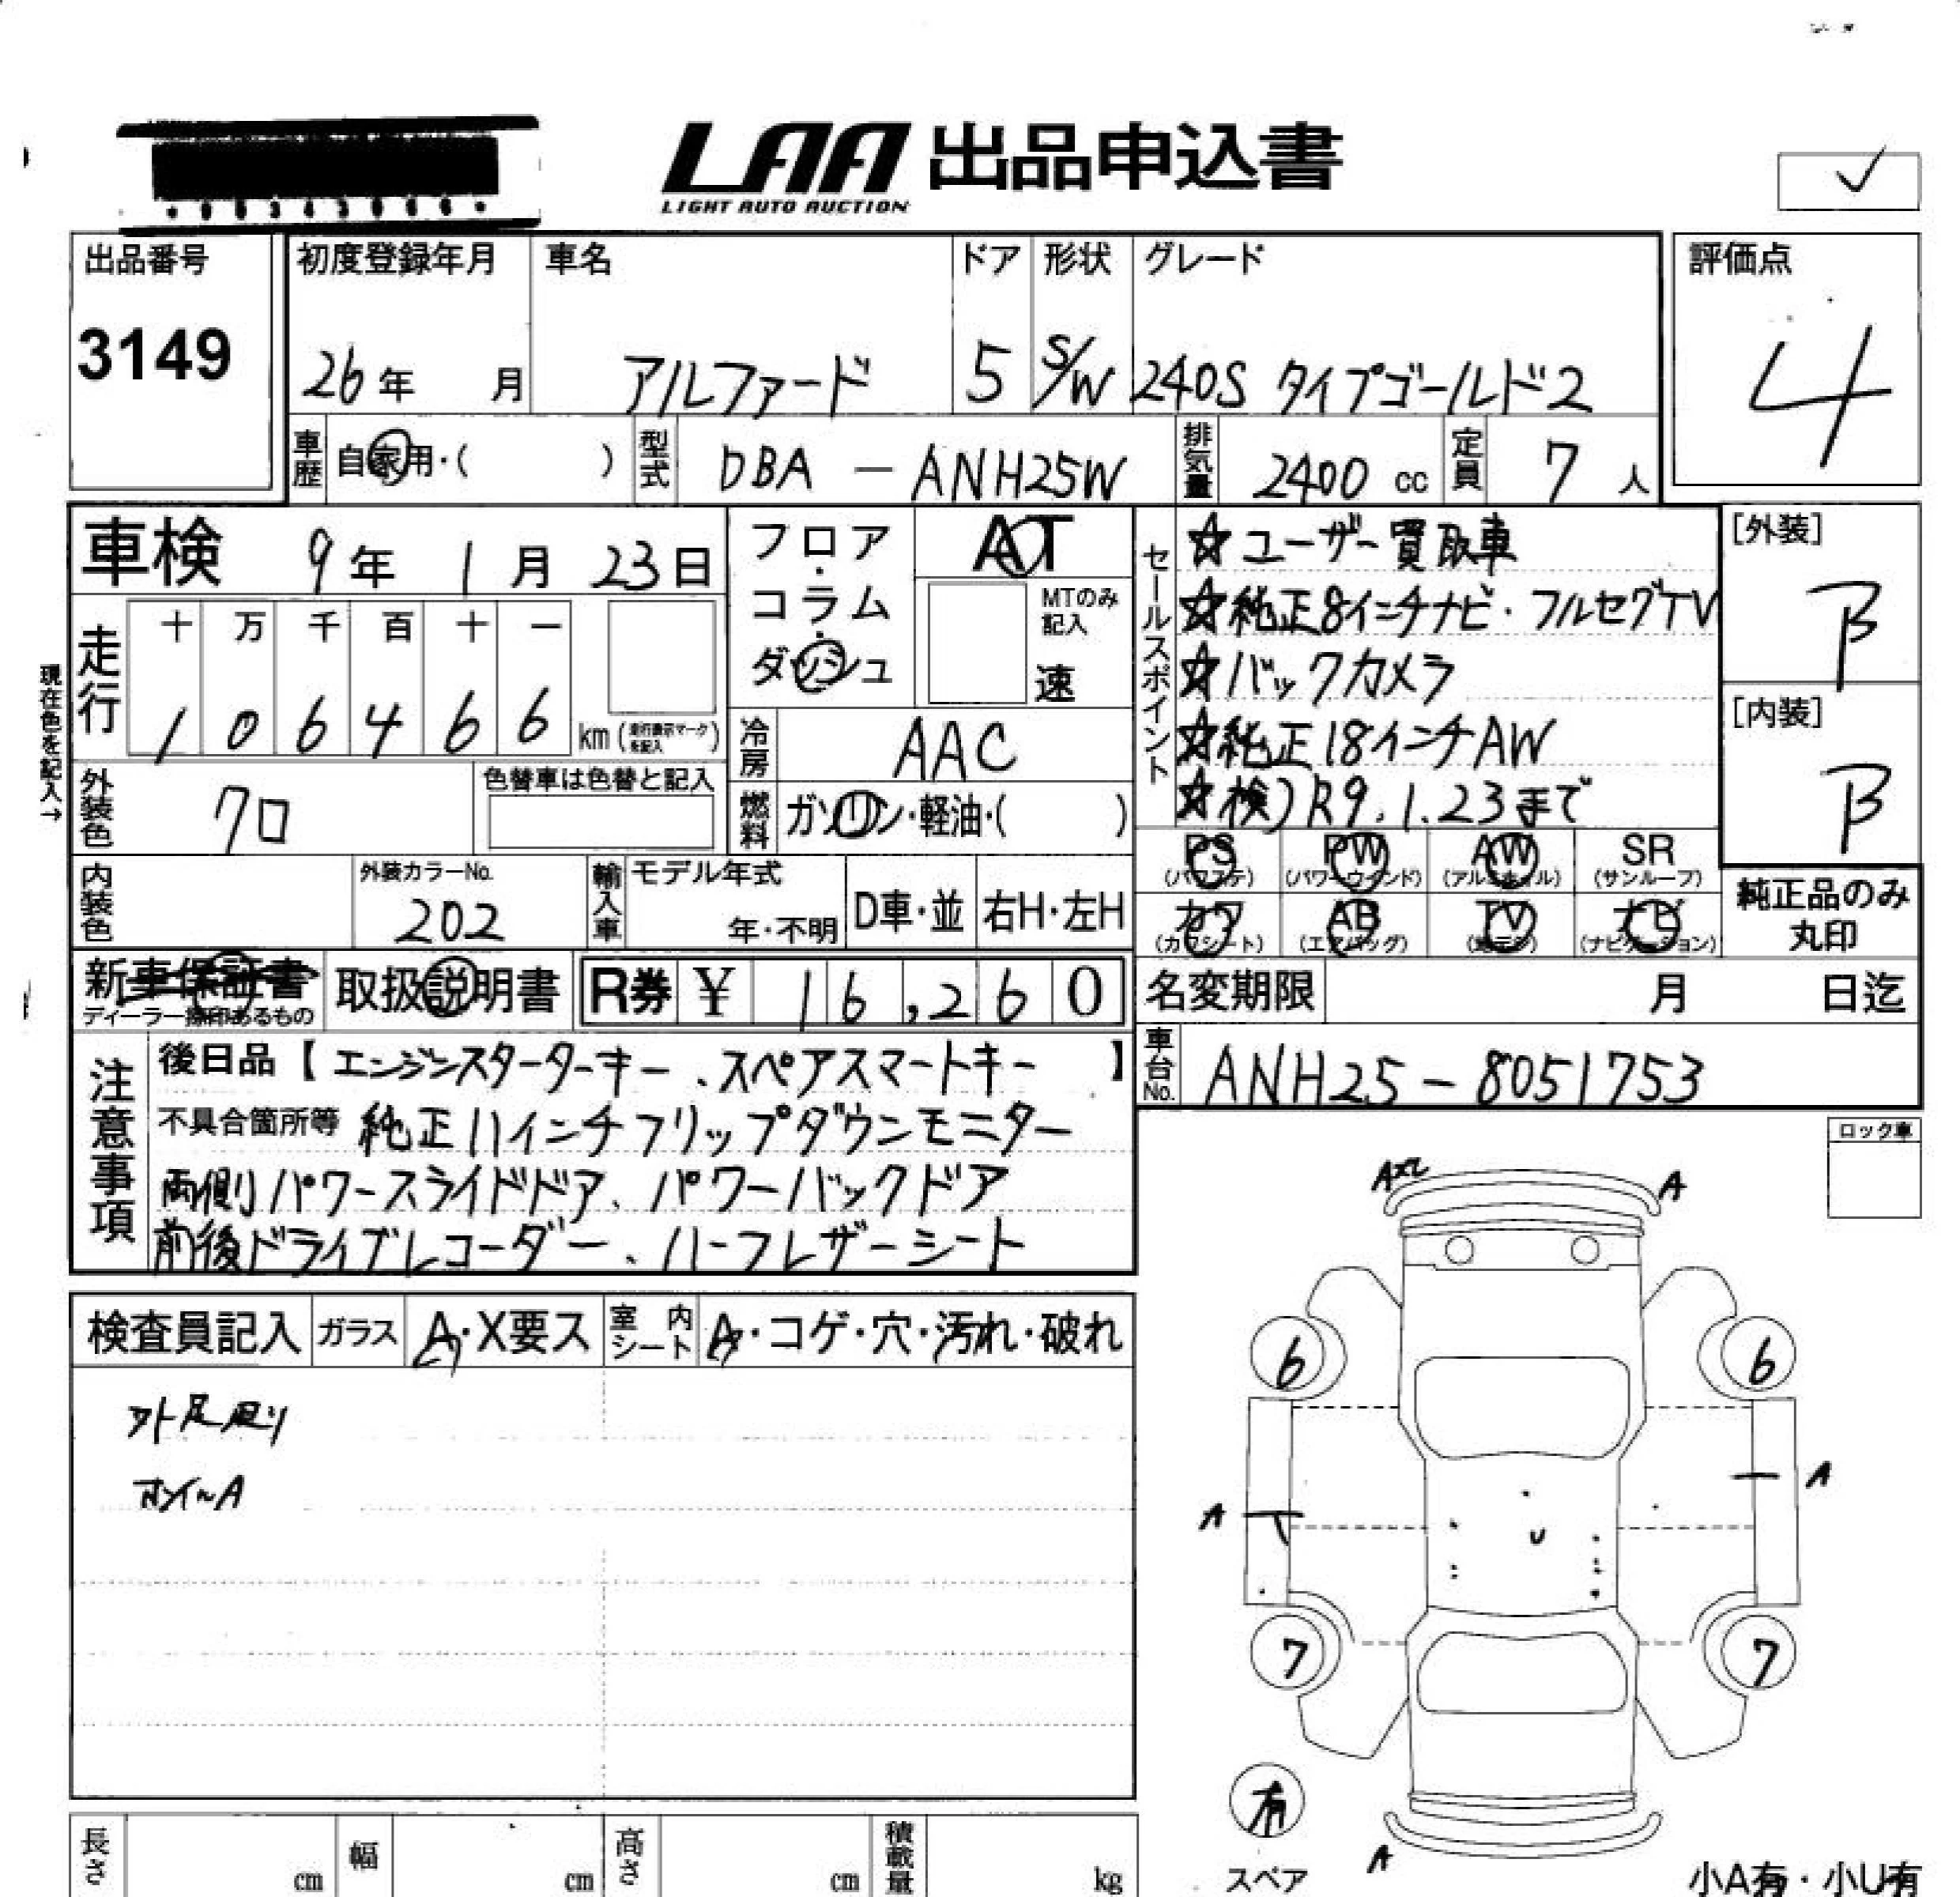 LAA 出品申込書
LIGHT AUTO AUCTION
出品番号
3149
初度登録年月
26年 月
車名
アルファード
ドア
5
形状
S/W
グレード
240S タイプゴールド2
評価点
4
車歴 自家用・( )
型式 DBA - ANH25W
排気量 2400 cc
定員 7 人
車検 9年 1月 23日
走行
十 万 千 百 十 一
1 0 6 4 6 6 km
現在色を記入→
フロア・コラム・ダッシュ
AT
MTのみ記入
速
冷房 AAC
燃料 ガソリン・軽油・( )
外装色 クロ
色替車は色替と記入
内装色
外装カラーNo.
202
輸入車 モデル年式
年・不明
D車・並
右H・左H
セールスポイント
☆ユーザー買取車
☆純正8インチナビ・フルセグTV
☆バックカメラ
☆純正18インチAW
☆検)R9.1.23まで
[外装]
B
[内装]
B
PS (パワステ)
PW (パワーウインド)
AW (アルミホイル)
SR (サンルーフ)
カワ (カワシート)
AB (エアバッグ)
TV (地デジ)
ナビ (ナビゲーション)
純正品のみ
丸印
新車保証書
取扱説明書
R券 ¥ 16,260
名変期限 月 日迄
車台No. ANH25-8051753
注意事項
後日品【エンジンスターターキー、スペアスマートキー】
不具合箇所等 純正11インチフリップダウンモニター
両側パワースライドドア、パワーバックドア
前後ドライブレコーダー、ハーフレザーシート
ロック車
検査員記入
ガラス A・X要ス
室内シート A・コゲ・穴・汚れ・破れ
A
A
6
6
A
A
U
7
7
有
スペア
A
小A有・小U有
長さ cm
幅 cm
高さ cm
積載量 kg